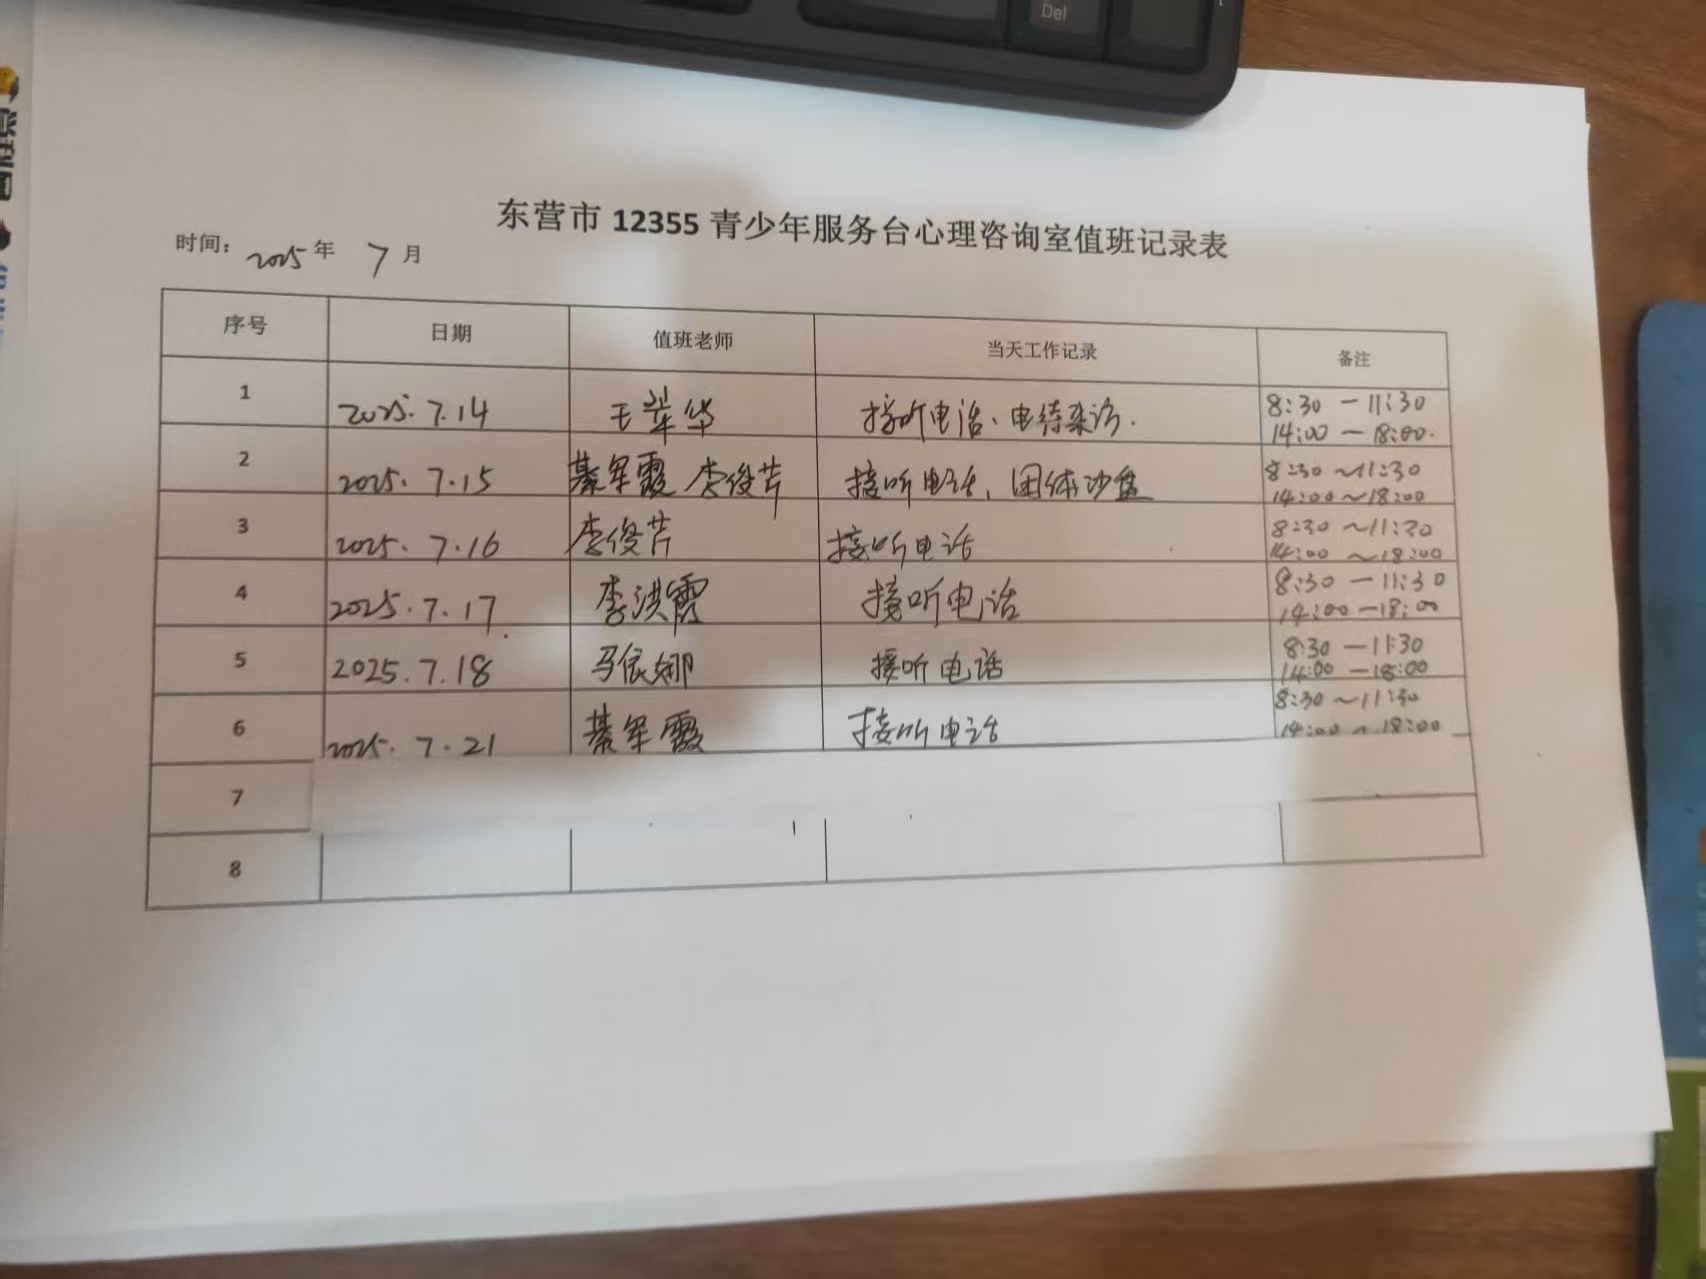 Del
东营市 12355 青少年服务台心理咨询室值班记录表
时间: 2025 年 7 月
序号 日期 值班老师 当天工作记录 备注
1 2025.7.14 王翠华 接听电话、电待来访. 8:30 — 11:30
14:00 — 18:00.
2 2025.7.15 綦军霞 李俊芹 接听电话, 团体沙盘 8:30 ~ 11:30
14:00 ~ 18:00
3 2025.7.16 李俊芹 接听电话 8:30 ~ 11:30
14:00 ~ 18:00
4 2025.7.17. 李洪霞 接听电话 8:30 — 11:30
14:00 — 18:00
5 2025.7.18 马依娜 接听电话 8:30 — 11:30
14:00 — 18:00
6 2025.7.21 綦军霞 接听电话 8:30 ~ 11:30
14:00 ~ 18:00
7
8